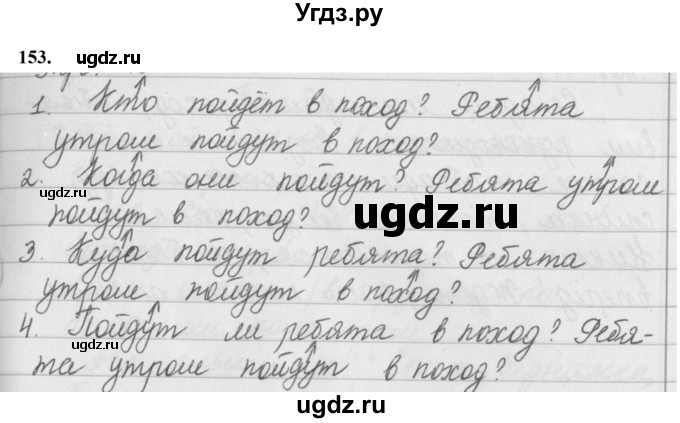 Угдз.ру
153. ugdz.ru
1. Кто пойдёт в поход? Ребята
утром пойдут в поход?
ugdz.ru
2. Когда они пойдут? Ребята утром
пойдут в поход?
ugdz.ru
3. Куда пойдут ребята? Ребята
утром пойдут в поход?
4. Пойдут ли ребята в поход? Ребя-
та утром пойдут в поход?
ugdz.ru